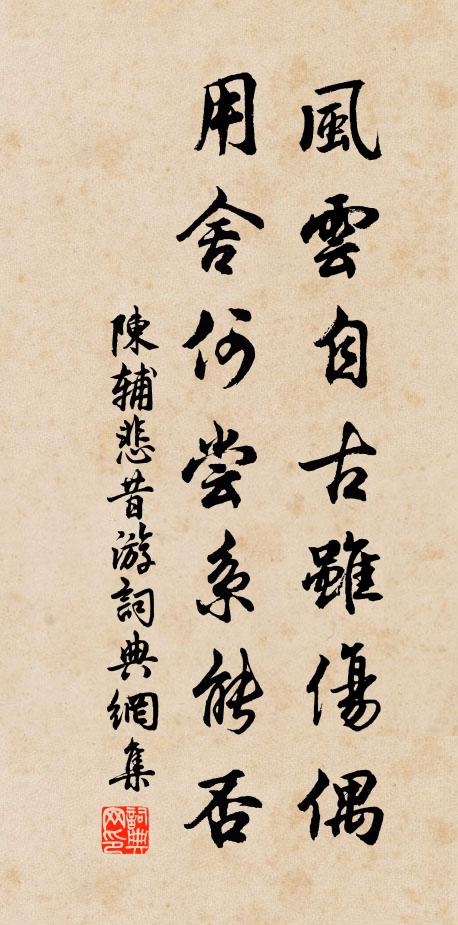 風雲自古雖傷偶
用舍何尝系能否
陳辅悲昔游詞典網集
詞典网印